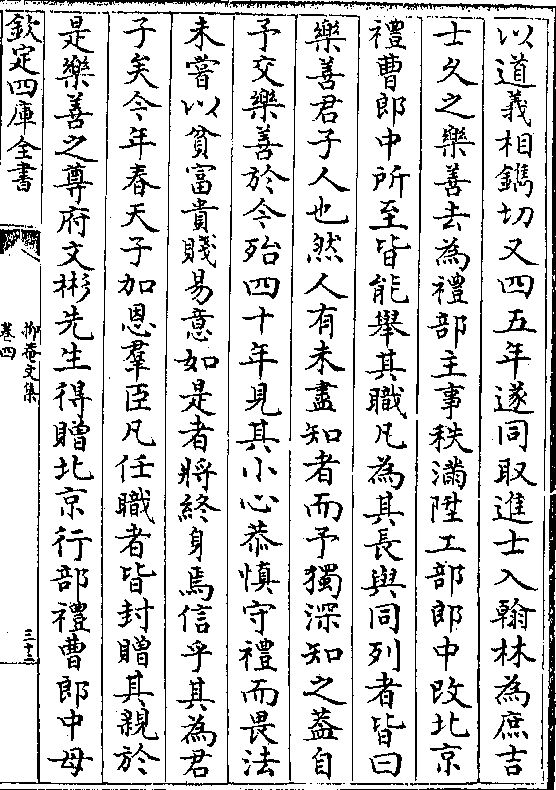 以道義相鐫切又四五年遂同取進士入翰林為庶吉
士久之樂善去為禮部主事秩滿陞工部郎中改北京
禮曹郎中所至皆能舉其職凡為其長與同列者皆曰
樂善君子人也然人有未盡知者而予獨深知之葢自
予交樂善於今殆四十年見其小心恭慎守禮而畏法
未嘗以貧富貴賤易意如是者將終身焉信乎其為君
子矣今年春天子加恩羣臣凡任職者皆封贈其親於
是樂善之尊府文彬先生得贈北京行部禮曹郎中母
欽定四庫全書
抑菴文集
卷四
三十三